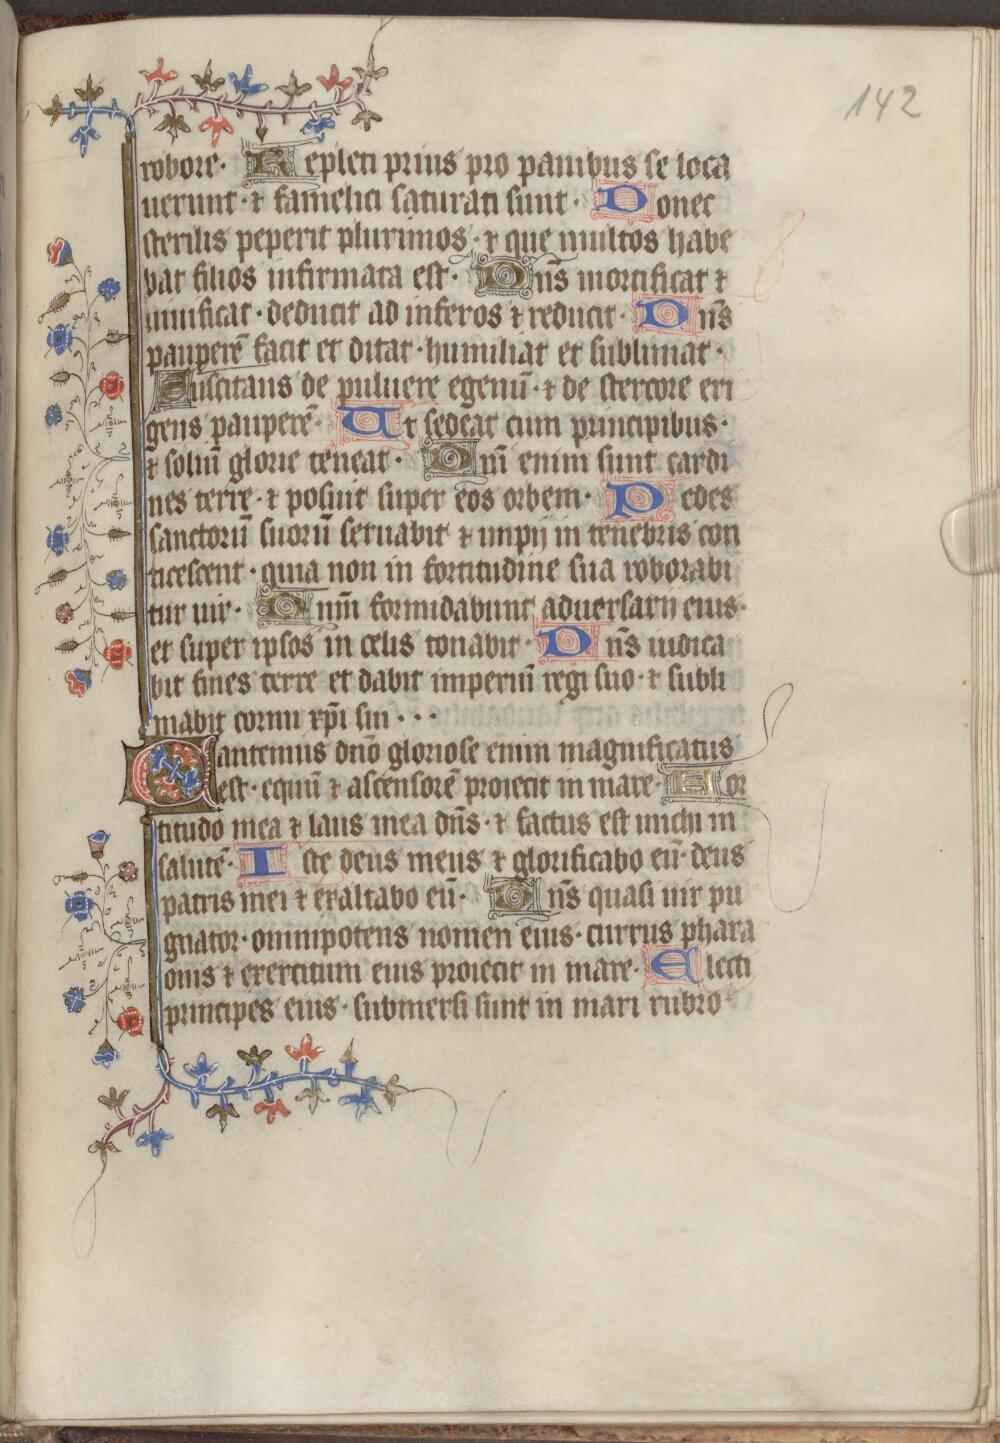 142
robore · Repleti prius pro panibus se loca
uerunt · ⁊ famelici saturati sunt · Donec
sterilis peperit plurimos · ⁊ que multos habe
bat filios infirmata est · Dn̄s mortificat ⁊
uiuificat · deducit ad inferos ⁊ reducit · Dn̄s
pauperē facit et ditat · humiliat et sublimat ·
Suscitans de puluere egenū · ⁊ de stercore eri
gens pauperē · Ut sedeat cum principibus ·
⁊ soliū glorie teneat · Dn̄i enim sunt cardi
nes terre · ⁊ posuit super eos orbem · Pedes
sanctorū suorū seruabit ⁊ impij in tenebris con
ticescent · quia non in fortitudine sua roborabi
tur uir · Dn̄m formidabunt aduersarij eius ·
et super ipsos in celis tonabit · Dn̄s iudica
bit fines terre et dabit imperiū regi suo · ⁊ subli
mabit cornu xp̄i sui · · ·
Cantemus dn̄o gloriose enim magnificatus
est · equū ⁊ ascensorē proiecit in mare · For
titudo mea ⁊ laus mea dn̄s · ⁊ factus est michi in
salutē · Iste deus meus ⁊ glorificabo eū · deus
patris mei ⁊ exaltabo eū · Dn̄s quasi uir pu
gnator · omnipotens nomen eius · currus phara
onis ⁊ exercitum eius proiecit in mare · Electi
principes eius · submersi sunt in mari rubro ·